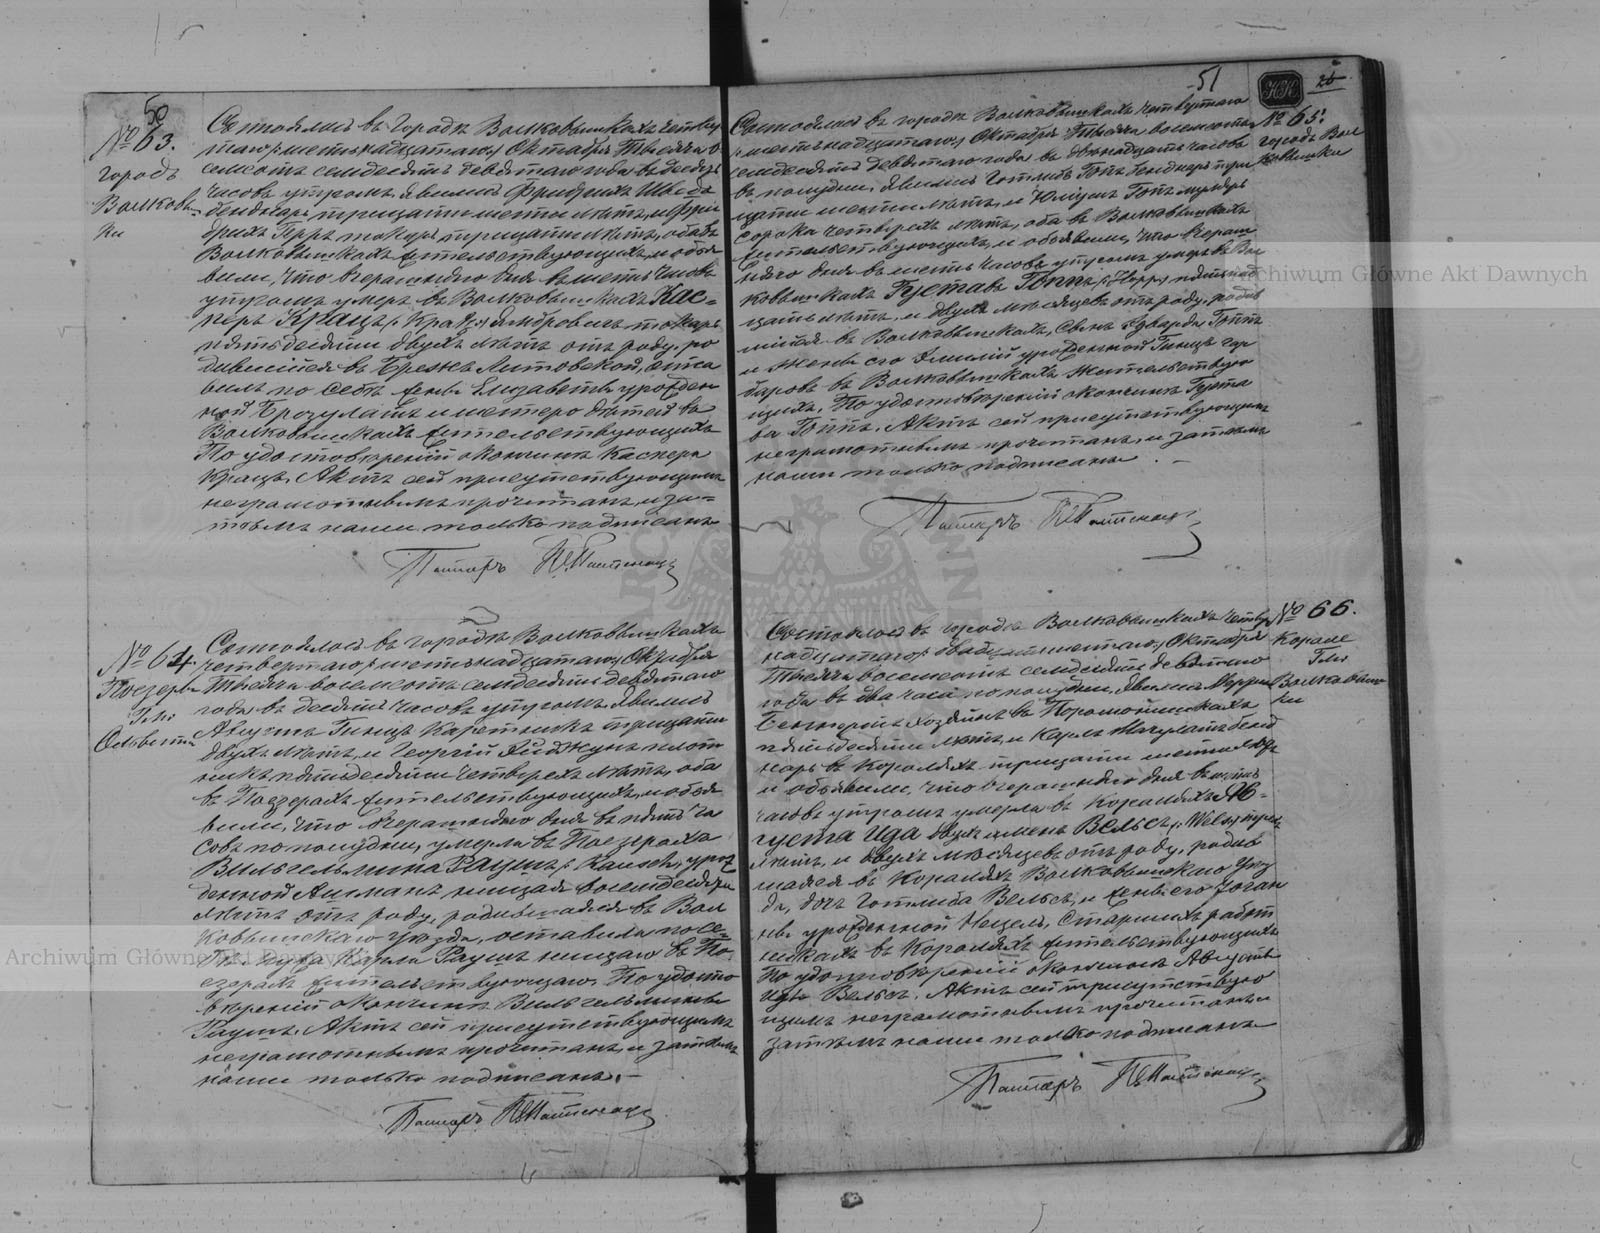 50
№ 63.
городъ
Волковы-
ки
Состоялось въ городѣ Волковышкахъ четвер
таго (шестнадцатаго) Октября Тысяча во
семсотъ семдесятъ девятаго года въ десять
часовъ утромъ, явились Фридрихъ
бендкарь тридцати шести лѣтъ, и Фри
дрихъ токарь, тридцати лѣтъ, оба въ
Волковышкахъ жительствующихъ, и объя
вили, что вчерашняго дня въ шесть часовъ
утромъ умеръ въ Волковышкахъ Кас-
перъ Крацъ, токарь
пятьдесяти двухъ лѣтъ отъ роду, ро
дившійся въ Брежѣ Литовской, оста
вилъ по себѣ жену Елизавету урожден
ной и шестеро дѣтей въ
Волковышкахъ жительствующихъ
По удостовѣреніи о кончинѣ Каспера
Крацъ, Актъ сей присутствующимъ
неграмотнымъ прочитанъ, и за-
тѣмъ нами только подписанъ
Пасторъ
№ 64.
Поезеры
Гми
Состоялось въ городѣ Волковышкахъ
четвертаго (шестнадцатаго) Октября
Тысяча восемсотъ семдесятъ девятаго
года въ десять часовъ утромъ, явились
Августъ Гинцъ Каретникъ тридцати
двухъ лѣтъ, и Георгій плот
никъ пятьдесяти четырехъ лѣтъ, оба
въ Поезерахъ жительствующихъ, и объя
вили, что вчерашняго дня въ пять ча
совъ по полудни, умерла въ Поезерахъ
Вильгельмина Раушъ, (Rausch), урож
денной нищая восемдесяти
лѣтъ отъ роду, родившаяся въ Вол
ковышскаго Уѣзда, оставила по се-
бѣ мужа Карла Раушъ нищаго въ По-
езерахъ жительствующаго. По удосто
вѣреніи о кончинѣ Вильгельмины
Раушъ, Актъ сей присутствующимъ
неграмотнымъ прочитанъ, и затѣмъ
нами только подписанъ.
Пасторъ
51
№ 65.
городъ Вол
ковышки
Состоялось въ городѣ Волковышкахъ четвертаго
(шестнадцатаго) Октября Тысяча восемсотъ
семдесятъ девятаго года въ двѣнадцать часовъ
въ полудни, явились Готлибъ Гопъ бендкарь трид
цати шести лѣтъ, и Юліусъ Гопъ муляръ
сорока четырехъ лѣтъ, оба въ Волковышкахъ
жительствующихъ, и объявили, что вчераш
няго дня въ шесть часовъ утромъ умеръ въ Вол
ковышкахъ Густавъ Гоппъ, (Hopp), пятнад
цать лѣтъ, и двухъ мѣсяцевъ отъ роду, родив
шійся въ Волковышкахъ, сынъ Эдварда Гоппъ
и жены его Эмиліи урожденной Гинцъ гар
баровъ въ Волковышкахъ жительствую
щихъ. По удостовѣреніи о кончинѣ Густа
ва Гоппъ, Актъ сей присутствующимъ
неграмотнымъ прочитанъ, и затѣмъ
нами только подписанъ
Пасторъ
№ 66.
Корале
Гми
Состоялось въ городѣ Волковышкахъ четыр
надцатаго (двадцать шестаго) Октября
Тысяча восемсотъ семдесятъ девятаго
года въ два часа по полудни, явились
хозяинъ въ
пятьдесяти лѣтъ, и Карлъ бенд
карь въ Кораляхъ тридцати шести лѣтъ
и объявили, что вчерашняго дня въ
часовъ утромъ умерла въ Кораляхъ Ав-
густа Ида двухъ именъ Вельсъ, (Wels), трехъ
лѣтъ, и двухъ мѣсяцевъ отъ роду, родив
шаяся въ Кораляхъ Волковышскаго Уѣз
да, дочь Готлиба Вельсъ, и жены его Іоган
ны урожденной старшихъ работ
никахъ въ Кораляхъ жительствующихъ
По удостовѣреніи о кончинѣ Августы
Иды Вельсъ, Актъ сей присутствую
щимъ неграмотнымъ прочитанъ, и
затѣмъ нами только подписанъ
Пасторъ
Archiwum Główne Akt Dawnych
Archiwum Główne Akt Dawnych